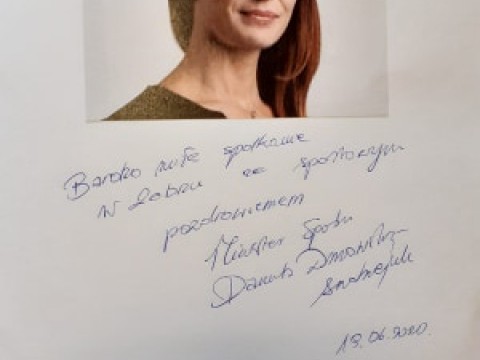 Bardzo miłe spotkanie
w Zabrzu ze sportowym
pozdrowieniem
Minister Sportu
Danuta Dmowska
19.06.2020.